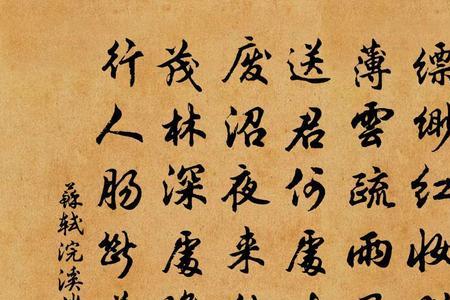 缥缈红妆
薄雲疏雨
送君何處
废沼夜来
茂林深處晚
行人肠断
蘇軾浣溪沙